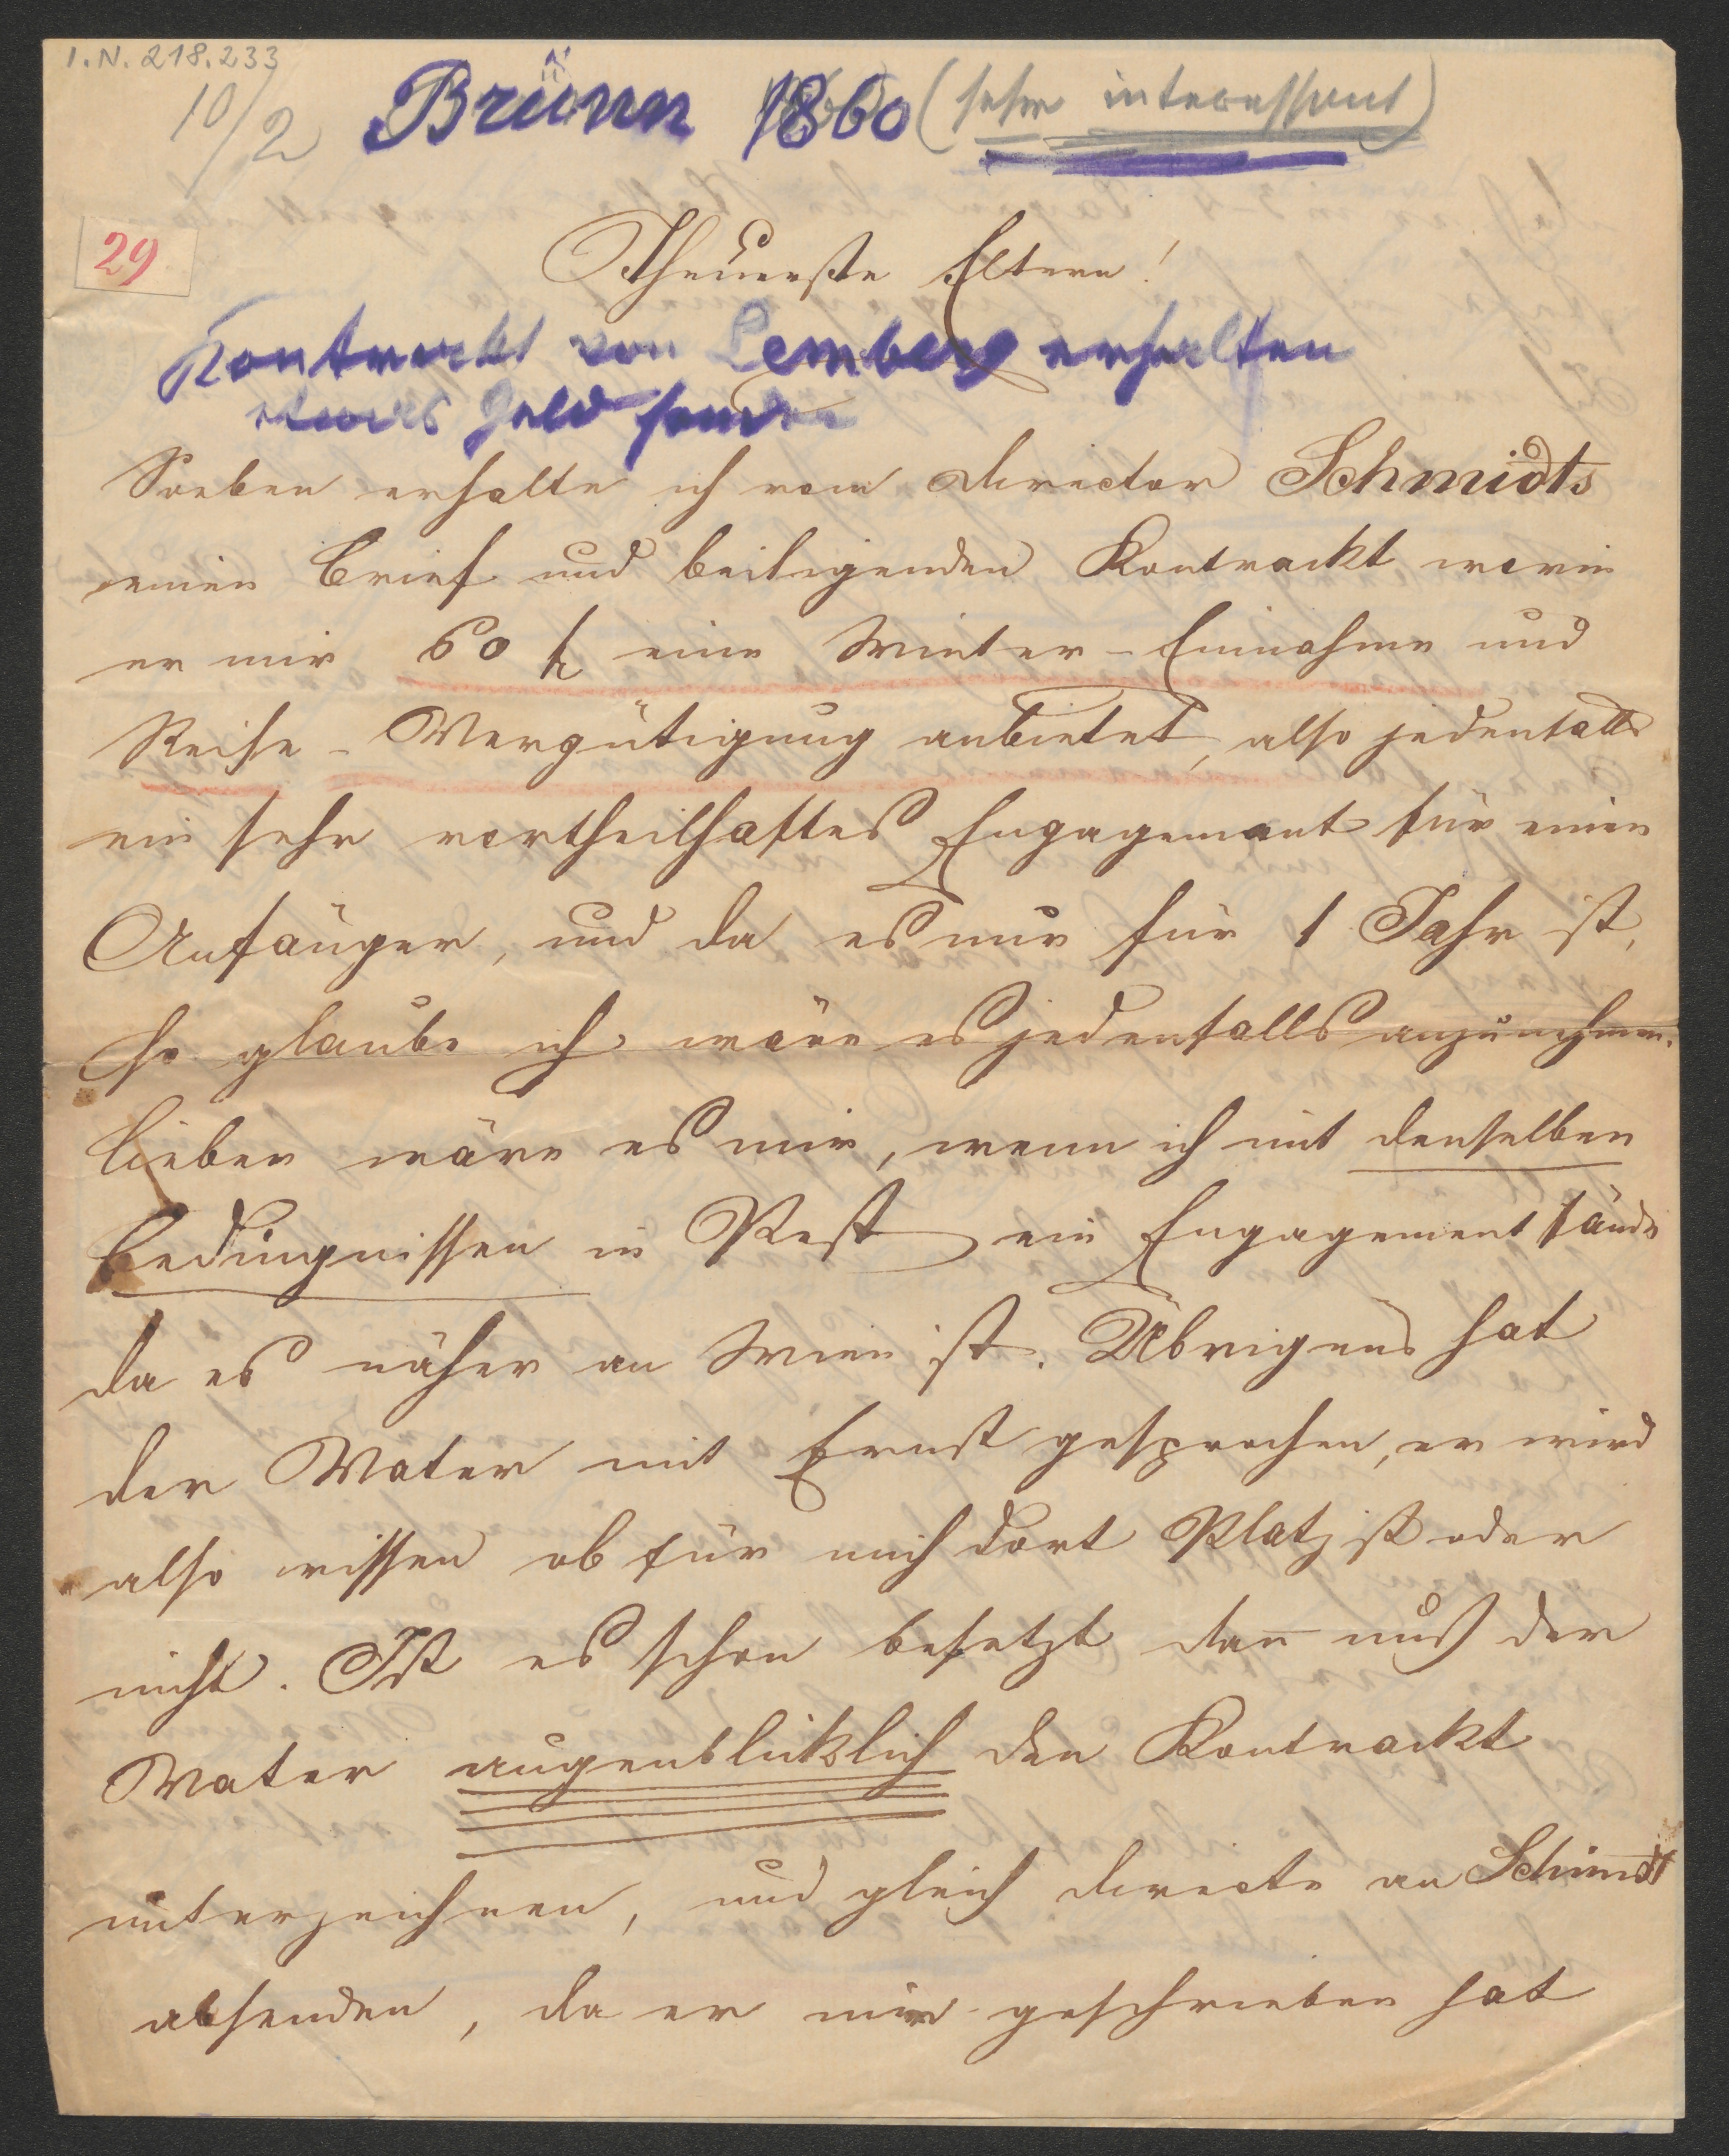 I.N. 218.233
10/2 Brünn 1860 (sehr interessant)
29
Theuerste Eltern!
Kontrackt von Lemberg erhalten
etwas Geld senden
Soeben erhalte ich vom Director Schmidts
einen Brief und beiligenden Kontrackt, worin
er mir 60 f eine Winter-Einnahme und
Reise-Vergütigung anbietet, also jedenfalls
ein sehr vortheilhaftes Engagement für einen
Anfänger, und da es nur für 1 Jahr ist,
so glaube ich wäre es jedenfalls anzunehmen.
Lieber wäre es mir, wenn ich mit denselben
Bedingnissen in Pest ein Engagement fände
da es näher an Wien ist. Übrigens hat
der Vater mit Ernst gesprochen, er wird
also wissen ob für mich dort Platz ist oder
nicht. Ist es schon besetzt dan̄ muß der
Vater augenblicklich den Kontrackt
unterzeichnen, und gleich directe an Schmidt
absenden, da er mir geschrieben hat